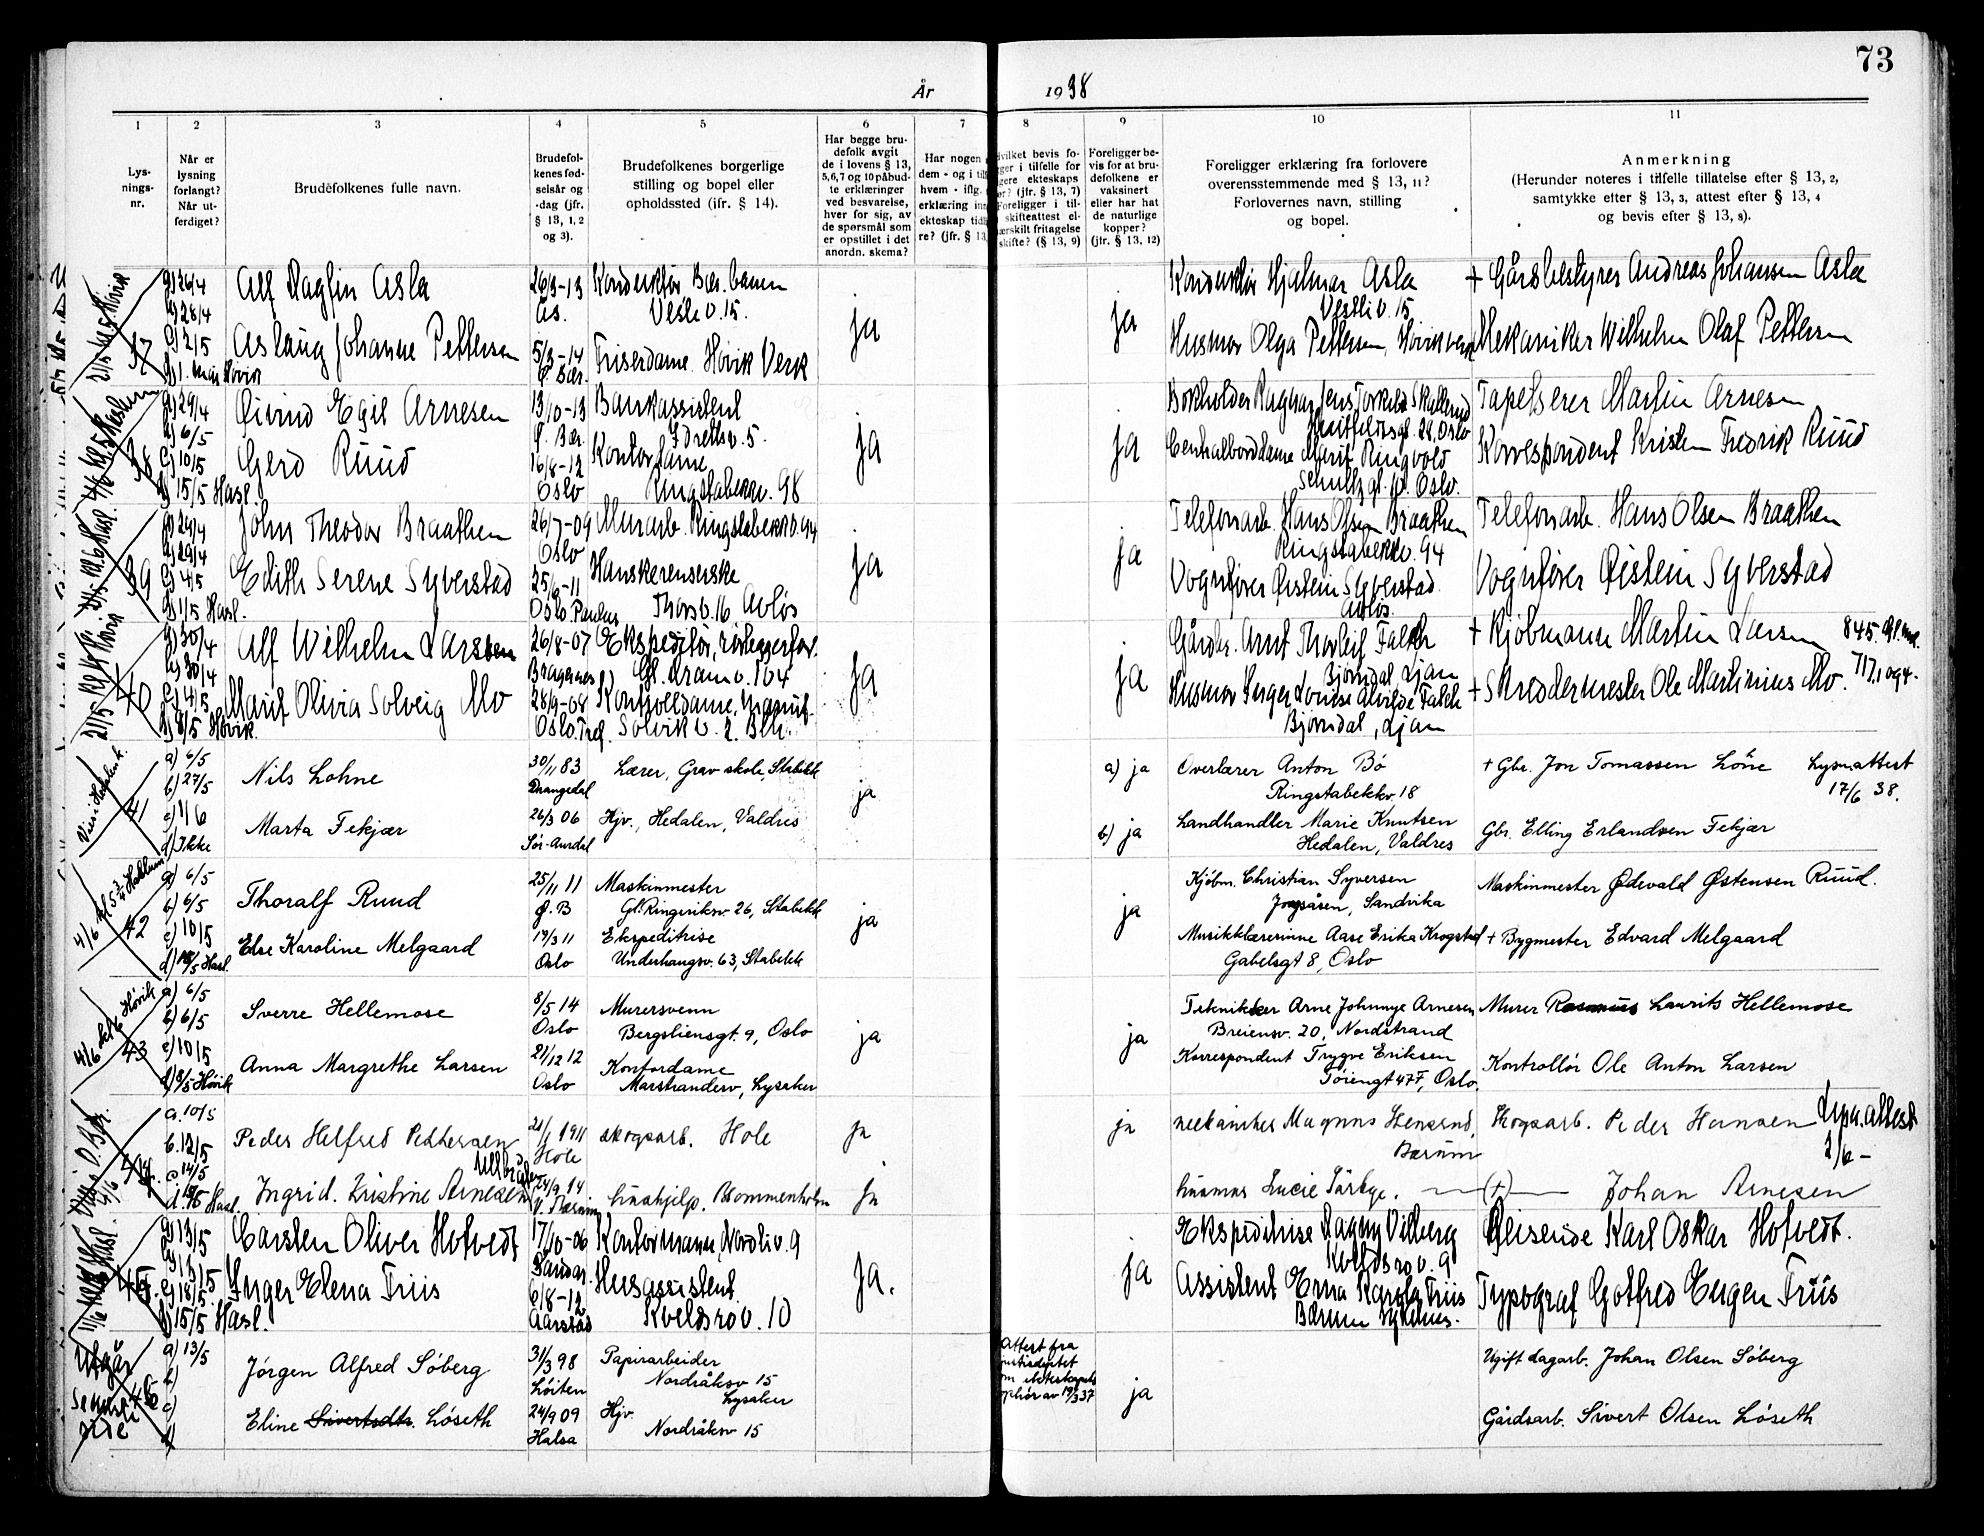 73
År 1938
1 2 3 4 5 6 7 8 9 10 11
Lys-
nings-
nr.
Når er
lysning
forlangt?
Når ut-
ferdiget?
Brudefolkenes fulle navn.
Brudefol-
kenes fød-
selsår og
-dag (jfr.
§ 13, 1, 2
og 3).
Brudefolkenes borgerlige
stilling og bopel eller
opholdssted (ifr. § 14).
Har begge bru-
defolk avgit
de i lovens § 13,
5, 6, 7 og 10 påbud-
te erklæringer
ved besvarelse,
hver for sig, av
de spørsmål som
er opstillet i det
anordn. skema?
Har nogen
dem - og i til
hvem - iflg.
erklæring inn
ekteskap tidl
re? (jfr. § 13,
hvilket bevis fo-
ger i tilfelle for
gere ekteskaps
or? (jfr. § 13, 7)
Foreligger i til-
skifteattest el-
ærskilt fritagelse
skifte? (§ 13, 9)
Foreligger be-
vis for at bru-
defolkene er
vaksinert
eller har hat
de naturlige
kopper?
(jfr. § 13, 12)
Foreligger erklæring fra forlovere
overensstemmende med § 13, 11?
Forlovernes navn, stilling
og bopel.
Anmerkning
(Herunder noteres i tilfelle tillatelse efter § 13, 2,
samtykke efter § 13, 3, attest efter § 13, 4
og bevis efter § 13, 8).
37
a) 26/4
b) 28/4
c) 2/5
Alf Ragfin Asla
26/3-13
Ås.
Konduktør Bær. banen
Vestliv. 15.
ja
ja
Konduktør Hjalmar Asla
Vestliv. 15.
+ Gårdsbestyrer Andreas Johansen Asla
Aslaug Johanne Pettersen
5/3-14
Ø. Bær.
Friserdame. Høvik Verk
Husmor Olga Pettersen, Høvik verk
Mekaniker Wilhelm Olaf Pettersen
38
a) 29/4
b) 6/5
c) 10/5
d) 15/5 Hasl.
Øivind Egil Arnesen
13/10-13
Ø. Bær.
Bankassistent
Idrettsv. 5.
ja
ja
Bokholder Ragnar Jens Torkild Skallerud
Huitfeldtsgt. 28, Oslo
Tapetserer Martin Arnesen
Gerd Ruud
16/8-12
Oslo
Kontordame
Ringstabekkv. 98
Centralborddame Marit Ringvold
Schultzgt. Oslo.
Korrespondent Kristen Fredrik Ruud
39
a) 29/4
b) 29/4
c) 4/5
d) 1/5 Hasl.
John Theodor Braathen
26/7-09
Oslo
Murarb. Ringstabekkv. 94
ja
ja
Telefonarb. Hans Olsen Braathen
Ringstabekkv. 94
Telefonarb. Hans Olsen Braathen
Edith Serene Syverstad
25/6-11
Oslo. Paulus
Hanskerenserske
Thorsv. 16 Avløs
Vognfører Øistein Syverstad
Avløs.
Vognfører Øistein Syverstad
40
a) 30/4
b) 30/4
c) 4/5
d) 8/5 Høvik.
Alf Wilhelm Larsen
26/8-07
Bragernes
Ekspeditør, rørleggerfor.
Gl. Dramv. 104
ja
ja
Gårdbr. Arnt Thorleif Falch
Bjørndal, Ljan
+ Kjøbmann Martin Larsen
Marit Olivia Solveig Mo
28/9-08
Kontrolldame,
Solvik v. 2.
Husmor Inger Lovise Alvilde Falch
Bjørndal, Ljan
+ Skreddermester Ole Martinius Mo.
41
a) 6/5
b) 27/5
c) 1/6
d) Ikke
Nils Lohne
30/11 83
Drangedal
Lærer, Grav skole, Stabekk
ja
a) ja
Overlærer Anton Bö
Ringstabekkv. 18
+ Gbr. Jon Tomassen Löne
Lysn.attest
17/6 38.
Marta Fekjær
26/3 06
Sør-Aurdal
Hjv., Hedalen, Valdres
b) ja
Landhandler Marie Knutsen
Hedalen, Valdres
Gbr. Elling Erlandsen Fekjær
42
a) 6/5
b) 6/5
c) 10/5
Thoralf Ruud
25/11 11
Ø. B
Maskinmester
Gl. Ringeriksv. 26, Stabekk
ja
ja
Kjöbm. Christian Syversen
Jongsåsen, Sandvika
Maskinmester Ødevald Østensen Ruud.
Else Karoline Melgaard
19/3 11
Oslo
Ekspeditrise
Underhaugsv. 63, Stabekk
Musikklærerinne Aase Erika Krogstad
Gabelsgt 8, Oslo
+ Bygmester Edvard Melgaard
43
a) 6/5
b) 6/5
c) 10/5
d) 8/5 Høvik
Sverre Hellemose
8/5 14
Oslo
Murersvenn
Bergsliensgt. 9, Oslo
ja
ja
Tekniker Arne Johnnye Arnesen
Breiensv. 20, Nordstrand
Murer Rasmus Laurits Hellemose
Anna Margrethe Larsen
21/12 12
Oslo
Kontordame
Marstranderv, Lysaker
Korrespondent Trygve Eriksen
Sörengt 47F, Oslo.
Kontrollör Ole Anton Larsen
44.
a. 10/5
b. 12/5
c. 14/5
Peder Helfred Pedhersen
21/1 1911
Hole
skogsarb. Hole
ja
ja
mekaniker Magnus Stensrud,
Bærum
Skogsarb. Peder Hansen
Lysn. attest
2/6 -
Ingrid. Kristine Arnesen
24/9 14
V. Bærum
hushjelp. Blommenholm
ja
husmor Lucie
(+) Johan Arnesen
45.
a) 13/5
b) 13/5
c) 18/5
d) 15/5 Hasl.
Carsten Oliver Hofvedt
17/10-06
Sandar.
Kontormann, Nordliv. 9
ja.
ja
Ekspeditrise Dagny Vilberg
Kveldsrov. 9
Reisende Karl Oskar Hofvedt.
Inger Elena Friis
6/8-12
Aarstad
Husassistent.
Kveldsrov. 10
Assistent Erna Karola Friis
Bærum sykehus.
Typograf Gotfred Eugen Friis
Utgår
46
a) 13/5
b)
c)
d)
Jörgen Alfred Söberg
31/3 98
Löiten
Papirarbeider
Nordråksv 15
Lysaker
Attest fra
justisdeptet
om ekteskapets
ophör av 19/3 37
ja
Ugift dagarb. Johan Olsen Söberg
Eline Sivertsdtr. Löseth
24/9 09
Halsa
Hjv.
Nordråksv 15
Gårdsarb. Sivert Olsen Löseth